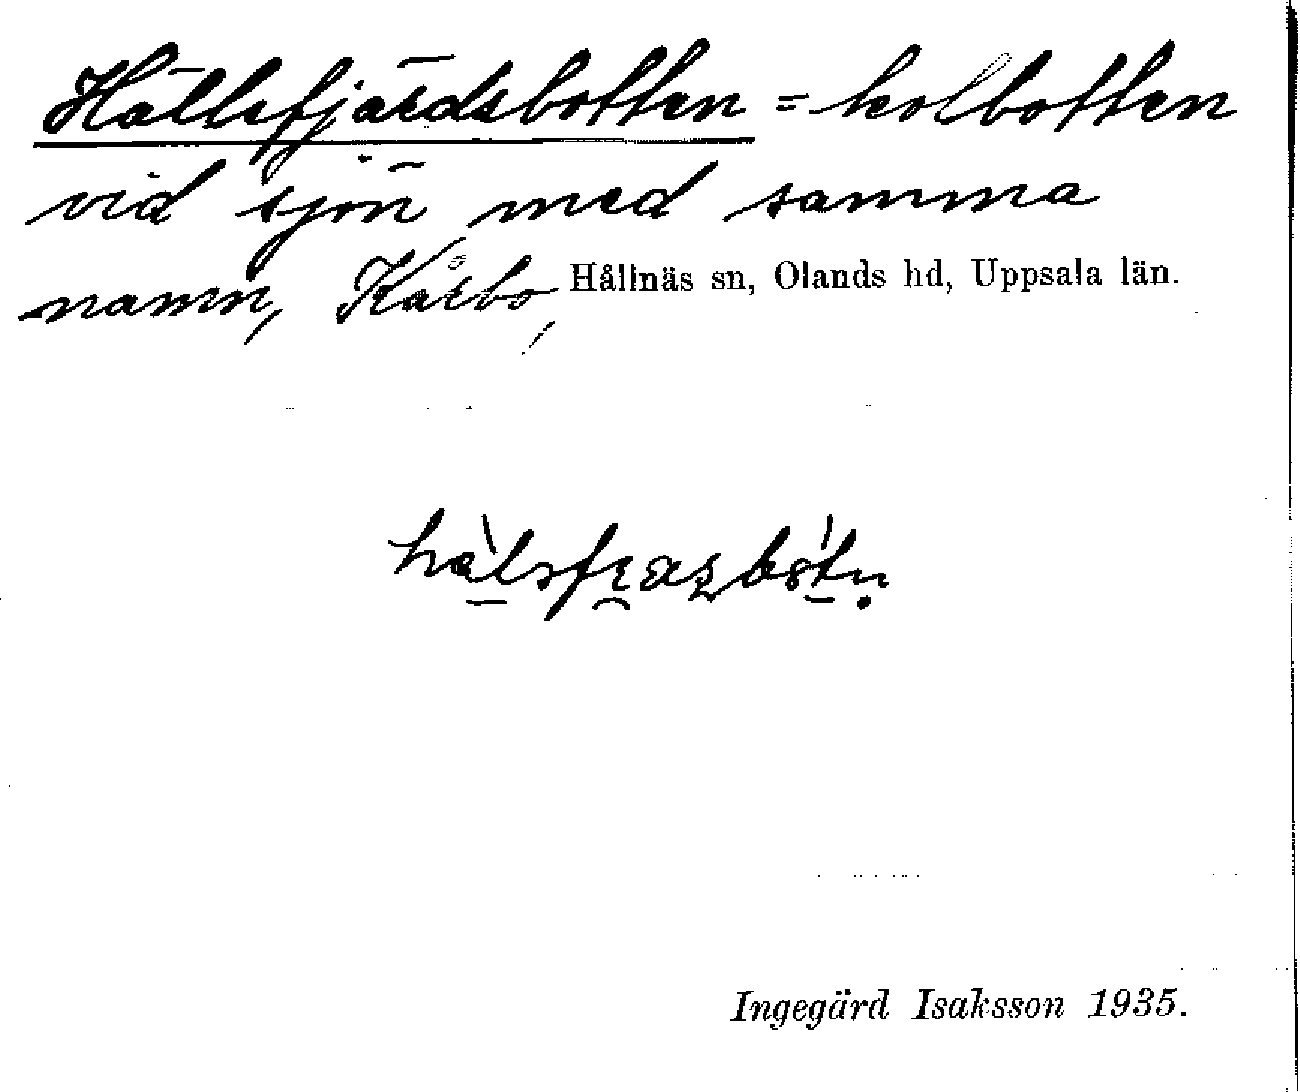 Hällsfjärdsbotten = kolbotten
vid sjön med samma
namn, Kårbo, Hållnäs sn, Olands hd, Uppsala län.
Ingegärd Isaksson 1935.